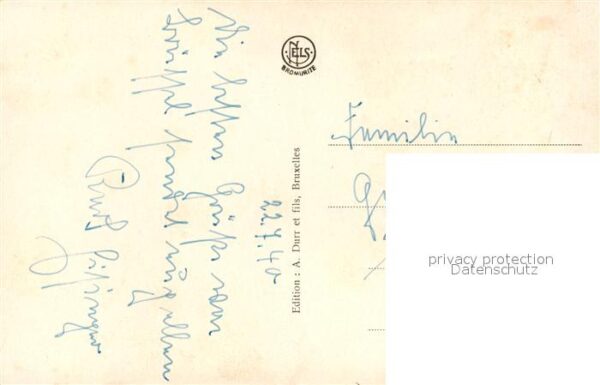 22.7.40
Die besten Grüße von
Brüssel sendet Euch allen
NELS
BROMURITE
Edition : A. Durr et fils, Bruxelles
Familie
privacy protection
Datenschutz